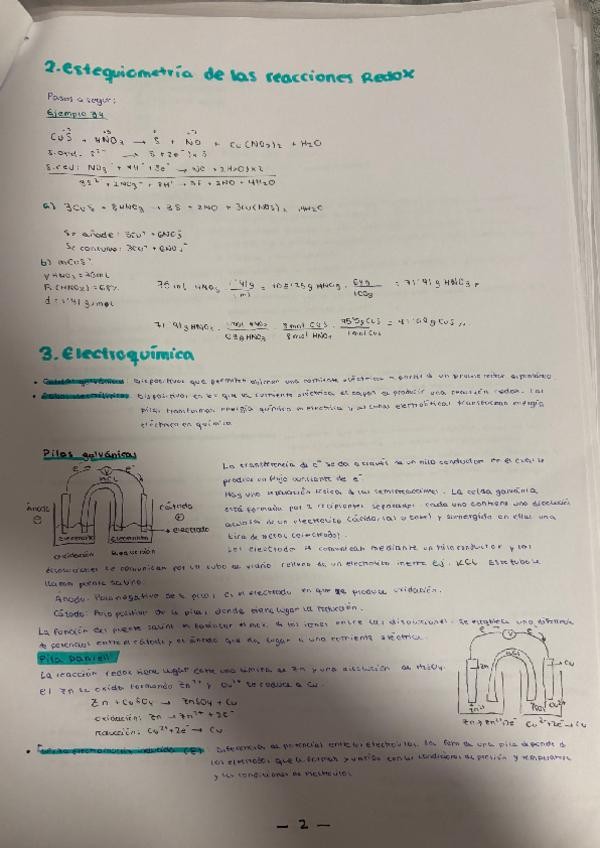 2. Estequiometría de las reacciones Redox
Pasos a seguir:
Ejemplo 34
CuS + 4HNO3 → S + NO + Cu(NO3)2 + H2O
S. oxid: S²⁻ → S + 2e⁻) x 3
S. red: NO3⁻ + 4H⁺ + 3e⁻ → NO + 2H2O) x 2
3S²⁻ + 2NO3⁻ + 8H⁺ → 3S + 2NO + 4H2O
a) 3CuS + 8HNO3 → 3S + 2NO + 3Cu(NO3)2 + 4H2O
Se añade: 3Cu²⁺ + 6NO3⁻
b) mCuS?
V HNO3 = 75mL
R(HNO3) = 68%
75 mL HNO3
= 71'91g HNO3
71'91g HNO3
3. Electroquímica
Celdas galvánicas: Dispositivos que permiten obtener una corriente eléctrica a partir de un proceso redox espontáneo.
Dispositivos en los que la corriente eléctrica es capaz de producir una reacción redox. Las
pilas transforman energía química en eléctrica y celdas electrolíticas transforman energía
eléctrica en química.
Pilas galvánicas
La transferencia de e⁻ se da a través de un hilo conductor en el cual se
produce un flujo constante de e⁻
Hay una separación física de las semirreacciones. La celda galvánica
está formada por 2 recipientes separados, cada uno contiene una disolución
acuosa de un electrolito (ácido, sal o base) y sumergido en ellas una
tira de metal (electrodo).
Los electrodos se conectan mediante un hilo conductor y las
disoluciones se comunican por un tubo de vidrio relleno de un electrolito inerte Ej: KCl. Este tubo se
llama puente salino.
Ánodo
Cátodo
KCl
electrodo
oxidación
Reducción
Ánodo: Polo negativo de la pila, es el electrodo en que se produce oxidación.
Cátodo: Polo positivo de la pila, donde tiene lugar la reducción.
La función del puente salino es
de los iones entre las disoluciones. Se establece una diferencia
de potencial entre el cátodo y el ánodo que da lugar a una corriente eléctrica.
Pila Daniell
La reacción redox tiene lugar entre una lámina de Zn y una disolución de
El Zn se oxida formando Zn²⁺ y Cu²⁺ se reduce a Cu.
Zn + CuSO4 → ZnSO4 + Cu
oxidación: Zn → Zn²⁺ + 2e⁻
reducción: Cu²⁺ + 2e⁻ → Cu
Zn
Cu
Zn → Zn²⁺ + 2e⁻ Cu²⁺ + 2e⁻ → Cu
(E): Diferencia de potencial entre los electrodos. La fem de una pila depende de
los electrodos que la forman y varía con las condiciones de presión y temperatura
y las condiciones de
— 2 —